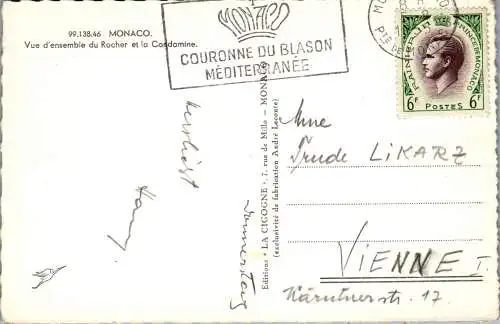 99.138.46 MONACO.
Vue d'ensemble du Rocher et la Condamine.
MONACO
COURONNE DU BLASON
MÉDITERRANÉE
RAINIER III PRINCE DE MONACO
6F POSTES 6F
Herzlichst
Editions "LA CIGOGNE", 7, rue de Millo - MONACO
(exclusivité de fabrication André Leconte)
Mme
Trude LIKARZ
VIENNE I.
Kärntnerstr. 17.